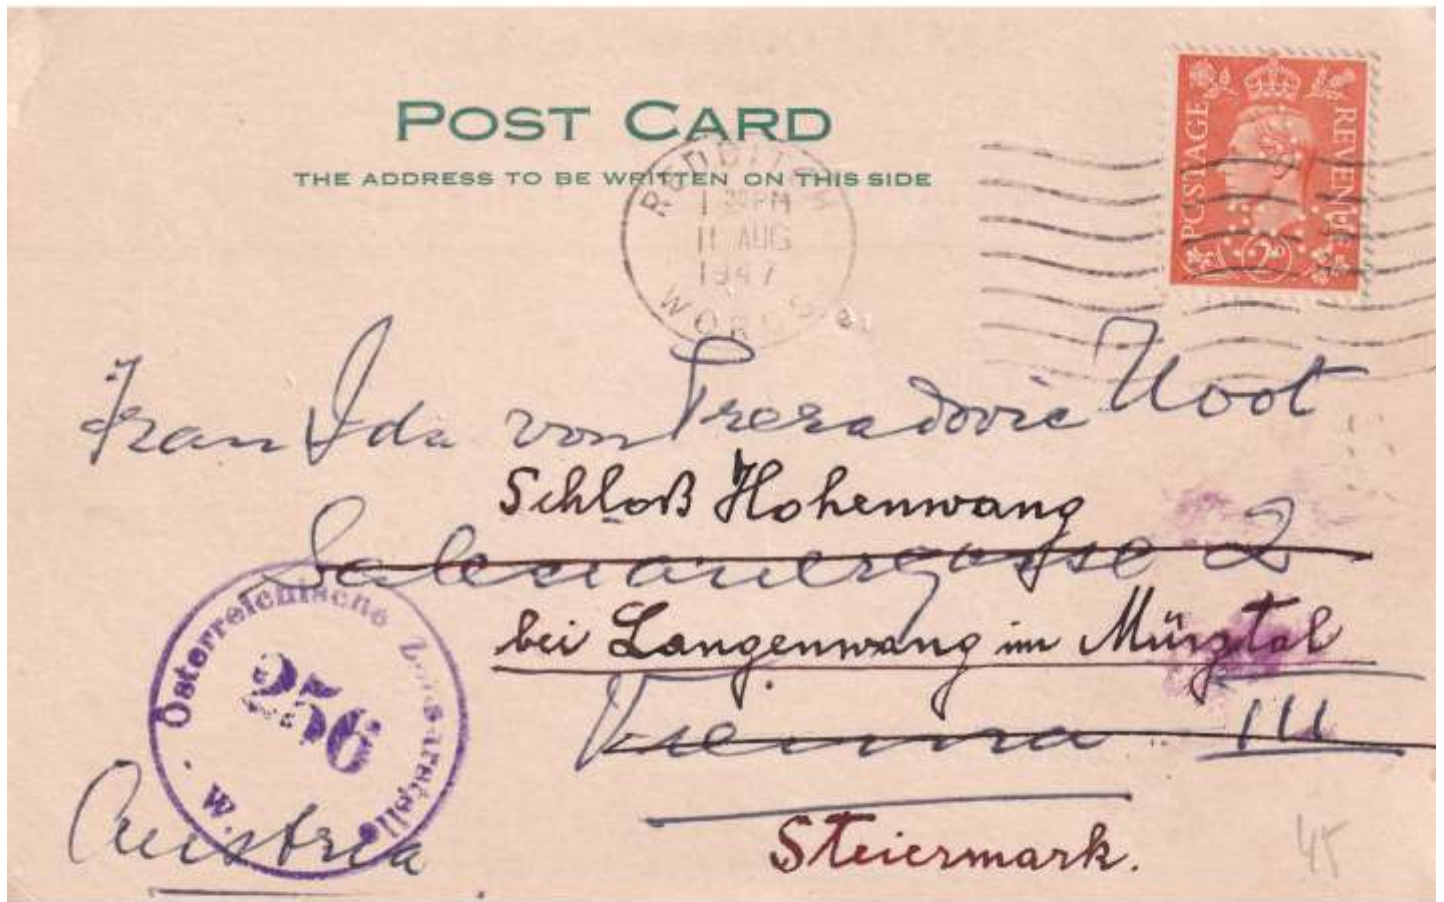 POST CARD
THE ADDRESS TO BE WRITTEN ON THIS SIDE
POSTAGE REVENUE
REDDITCH
1 30 PM
11 AUG
1947
WORCS
Frau Ida von Preradovic Noot
Schloß Hohenwang
Salesianergasse 2
bei Langenwang im Mürztal
Vienna III
Steiermark.
Austria
Österreichische Zensurstelle
256
W.
45